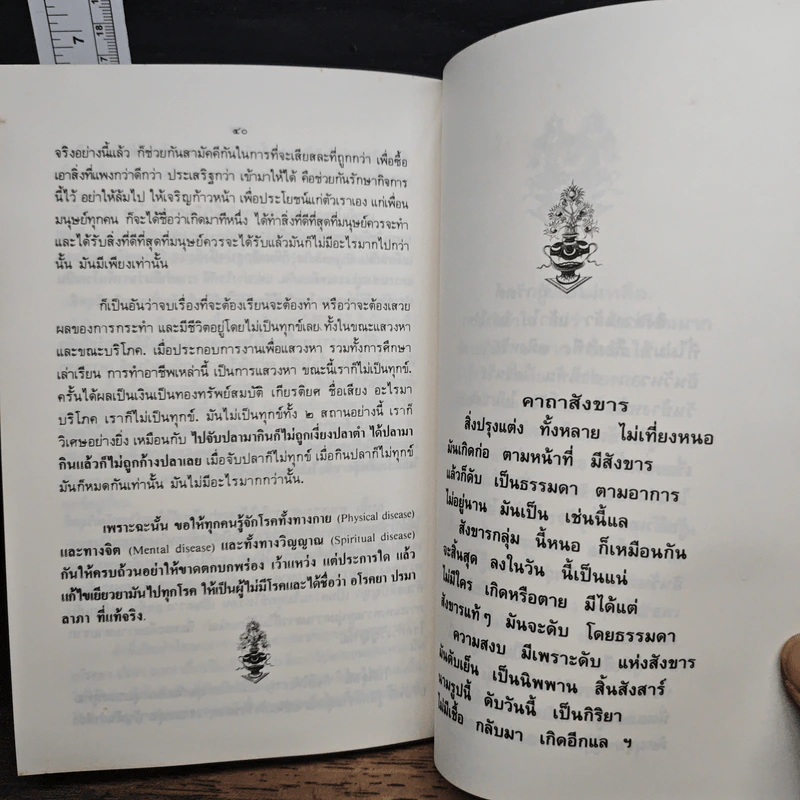 ๕๐
จริงอย่างนี้แล้ว ก็ช่วยกันสามัคคีกันในการที่จะเสียสละที่ถูกกว่า เพื่อซื้อ
เอาสิ่งที่แพงกว่าดีกว่า ประเสริฐกว่า เข้ามาให้ได้ คือช่วยกันรักษากิจการ
นี้ไว้ อย่าให้ล้มไป ให้เจริญก้าวหน้า เพื่อประโยชน์แก่ตัวเราเอง แก่เพื่อน
มนุษย์ทุกคน ก็จะได้ชื่อว่าเกิดมาทีหนึ่ง ได้ทำสิ่งที่ดีที่สุดที่มนุษย์ควรจะทำ
และได้รับสิ่งที่ดีที่สุดที่มนุษย์ควรจะได้รับแล้วมันก็ไม่มีอะไรมากไปกว่า
นั้น มันมีเพียงเท่านั้น
ก็เป็นอันว่าจบเรื่องที่จะต้องเรียนจะต้องทำ หรือว่าจะต้องเสวย
ผลของการกระทำ และมีชีวิตอยู่โดยไม่เป็นทุกข์เลย ทั้งในขณะแสวงหา
และขณะบริโภค. เมื่อประกอบการงานเพื่อแสวงหา รวมทั้งการศึกษา
เล่าเรียน การทำอาชีพเหล่านี้ เป็นการแสวงหา ขณะนี้เราก็ไม่เป็นทุกข์.
ครั้นได้ผลเป็นเงินเป็นทองทรัพย์สมบัติ เกียรติยศ ชื่อเสียง อะไรมา
บริโภค เราก็ไม่เป็นทุกข์. มันไม่เป็นทุกข์ทั้ง ๒ สถานอย่างนี้ เราก็
วิเศษอย่างยิ่ง เหมือนกับ ไปจับปลามากินก็ไม่ถูกเงี่ยงปลาตำ ได้ปลามา
กินแล้วก็ไม่ถูกก้างปลาเลย เมื่อจับปลาก็ไม่ทุกข์ เมื่อกินปลาก็ไม่ทุกข์
มันก็หมดกันเท่านั้น มันไม่มีอะไรมากกว่านั้น.
เพราะฉะนั้น ขอให้ทุกคนรู้จักโรคทั้งทางกาย (Physical disease)
และทางจิต (Mental disease) และทั้งทางวิญญาณ (Spiritual disease)
กันให้ครบถ้วนอย่าให้ขาดตกบกพร่อง เว้าแหว่ง แต่ประการใด แล้ว
แก้ไขเยียวยามันไปทุกโรค ให้เป็นผู้ไม่มีโรคและได้ชื่อว่า อโรคยา ปรมา
ลาภา ที่แท้จริง.
คาถาสังขาร
สิ่งปรุงแต่ง ทั้งหลาย ไม่เที่ยงหนอ
มันเกิดก่อ ตามหน้าที่ มีสังขาร
แล้วก็ดับ เป็นธรรมดา ตามอาการ
ไม่อยู่นาน มันเป็น เช่นนี้แล
สังขารกลุ่ม นี้หนอ ก็เหมือนกัน
จะสิ้นสุด ลงในวัน นี้เป็นแน่
ไม่มีใคร เกิดหรือตาย มีได้แต่
สังขารแท้ ๆ มันจะดับ โดยธรรมดา
ความสงบ มีเพราะดับ แห่งสังขาร
มันดับเย็น เป็นนิพพาน สิ้นสังสาร์
นามรูปนี้ ดับวันนี้ เป็นกิริยา
ไม่มีเชื้อ กลับมา เกิดอีกแล ฯ